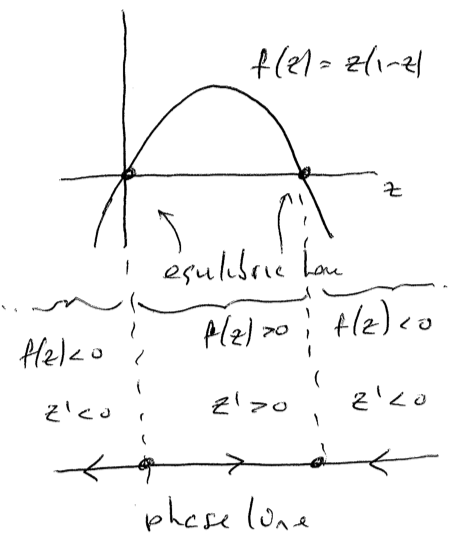 f(z) = z(1-z)
z
equilibria here
f(z)<0 f(z)>0 f(z)<0
z'<0 z'>0 z'<0
phase line